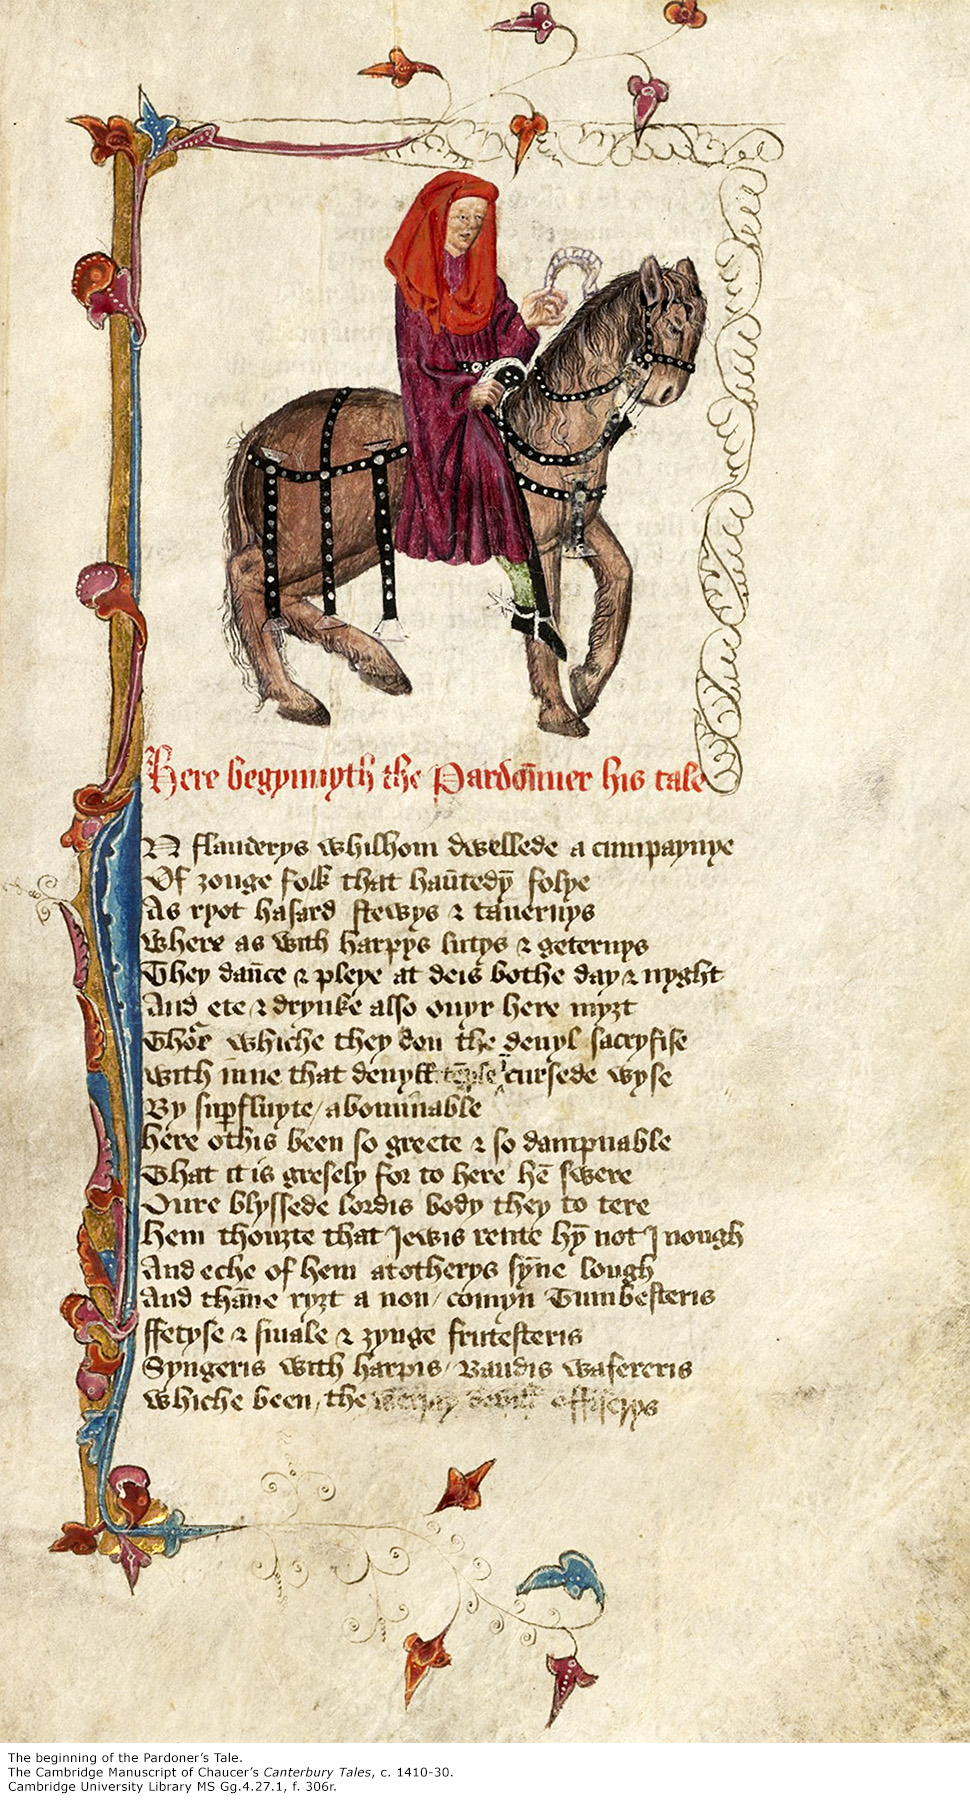 Here begynnyth the Pardoñner his tale
N flauderys whilhom dwellede a cumpaynye
Of ȝonge folk that hāutedȳ folye
As ryot hasard stewys & tauernys
Where as with harpys lutys & geternys
They daūce & pleye at deis bothe day & nyght
And ete & drynke also ouyr here myȝt
Thor whiche they don the deuyl sacryfise
With inne that deuyll cursede wyse
By supfluyte / abominable
here othis been so greete & so dampnable
That it is gresely for to here hē swere
Oure blyssede lordis body they to tere
hem thouȝte that Jewis rente hȳ not Inough
And eche of hem atotherys synne lough
And thāne ryȝt a non / comyn Tumbesteris
ffetyse & smale & ȝynge frutesteris
Syngeris with harpis / Baudis wafereris
Whiche been / the deuyl offiserys
The beginning of the Pardoner’s Tale.
The Cambridge Manuscript of Chaucer’s Canterbury Tales, c. 1410-30.
Cambridge University Library MS Gg.4.27.1, f. 306r.